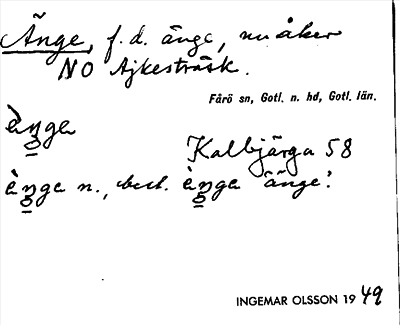 Änge, f.d. änge, nu åker
NO Ajkesträsk.
Fårö sn, Gotl. n. hd, Gotl. län.
ènga
Kalbjärga 58
ènga n., best. ènga 'änge'.
INGEMAR OLSSON 1949